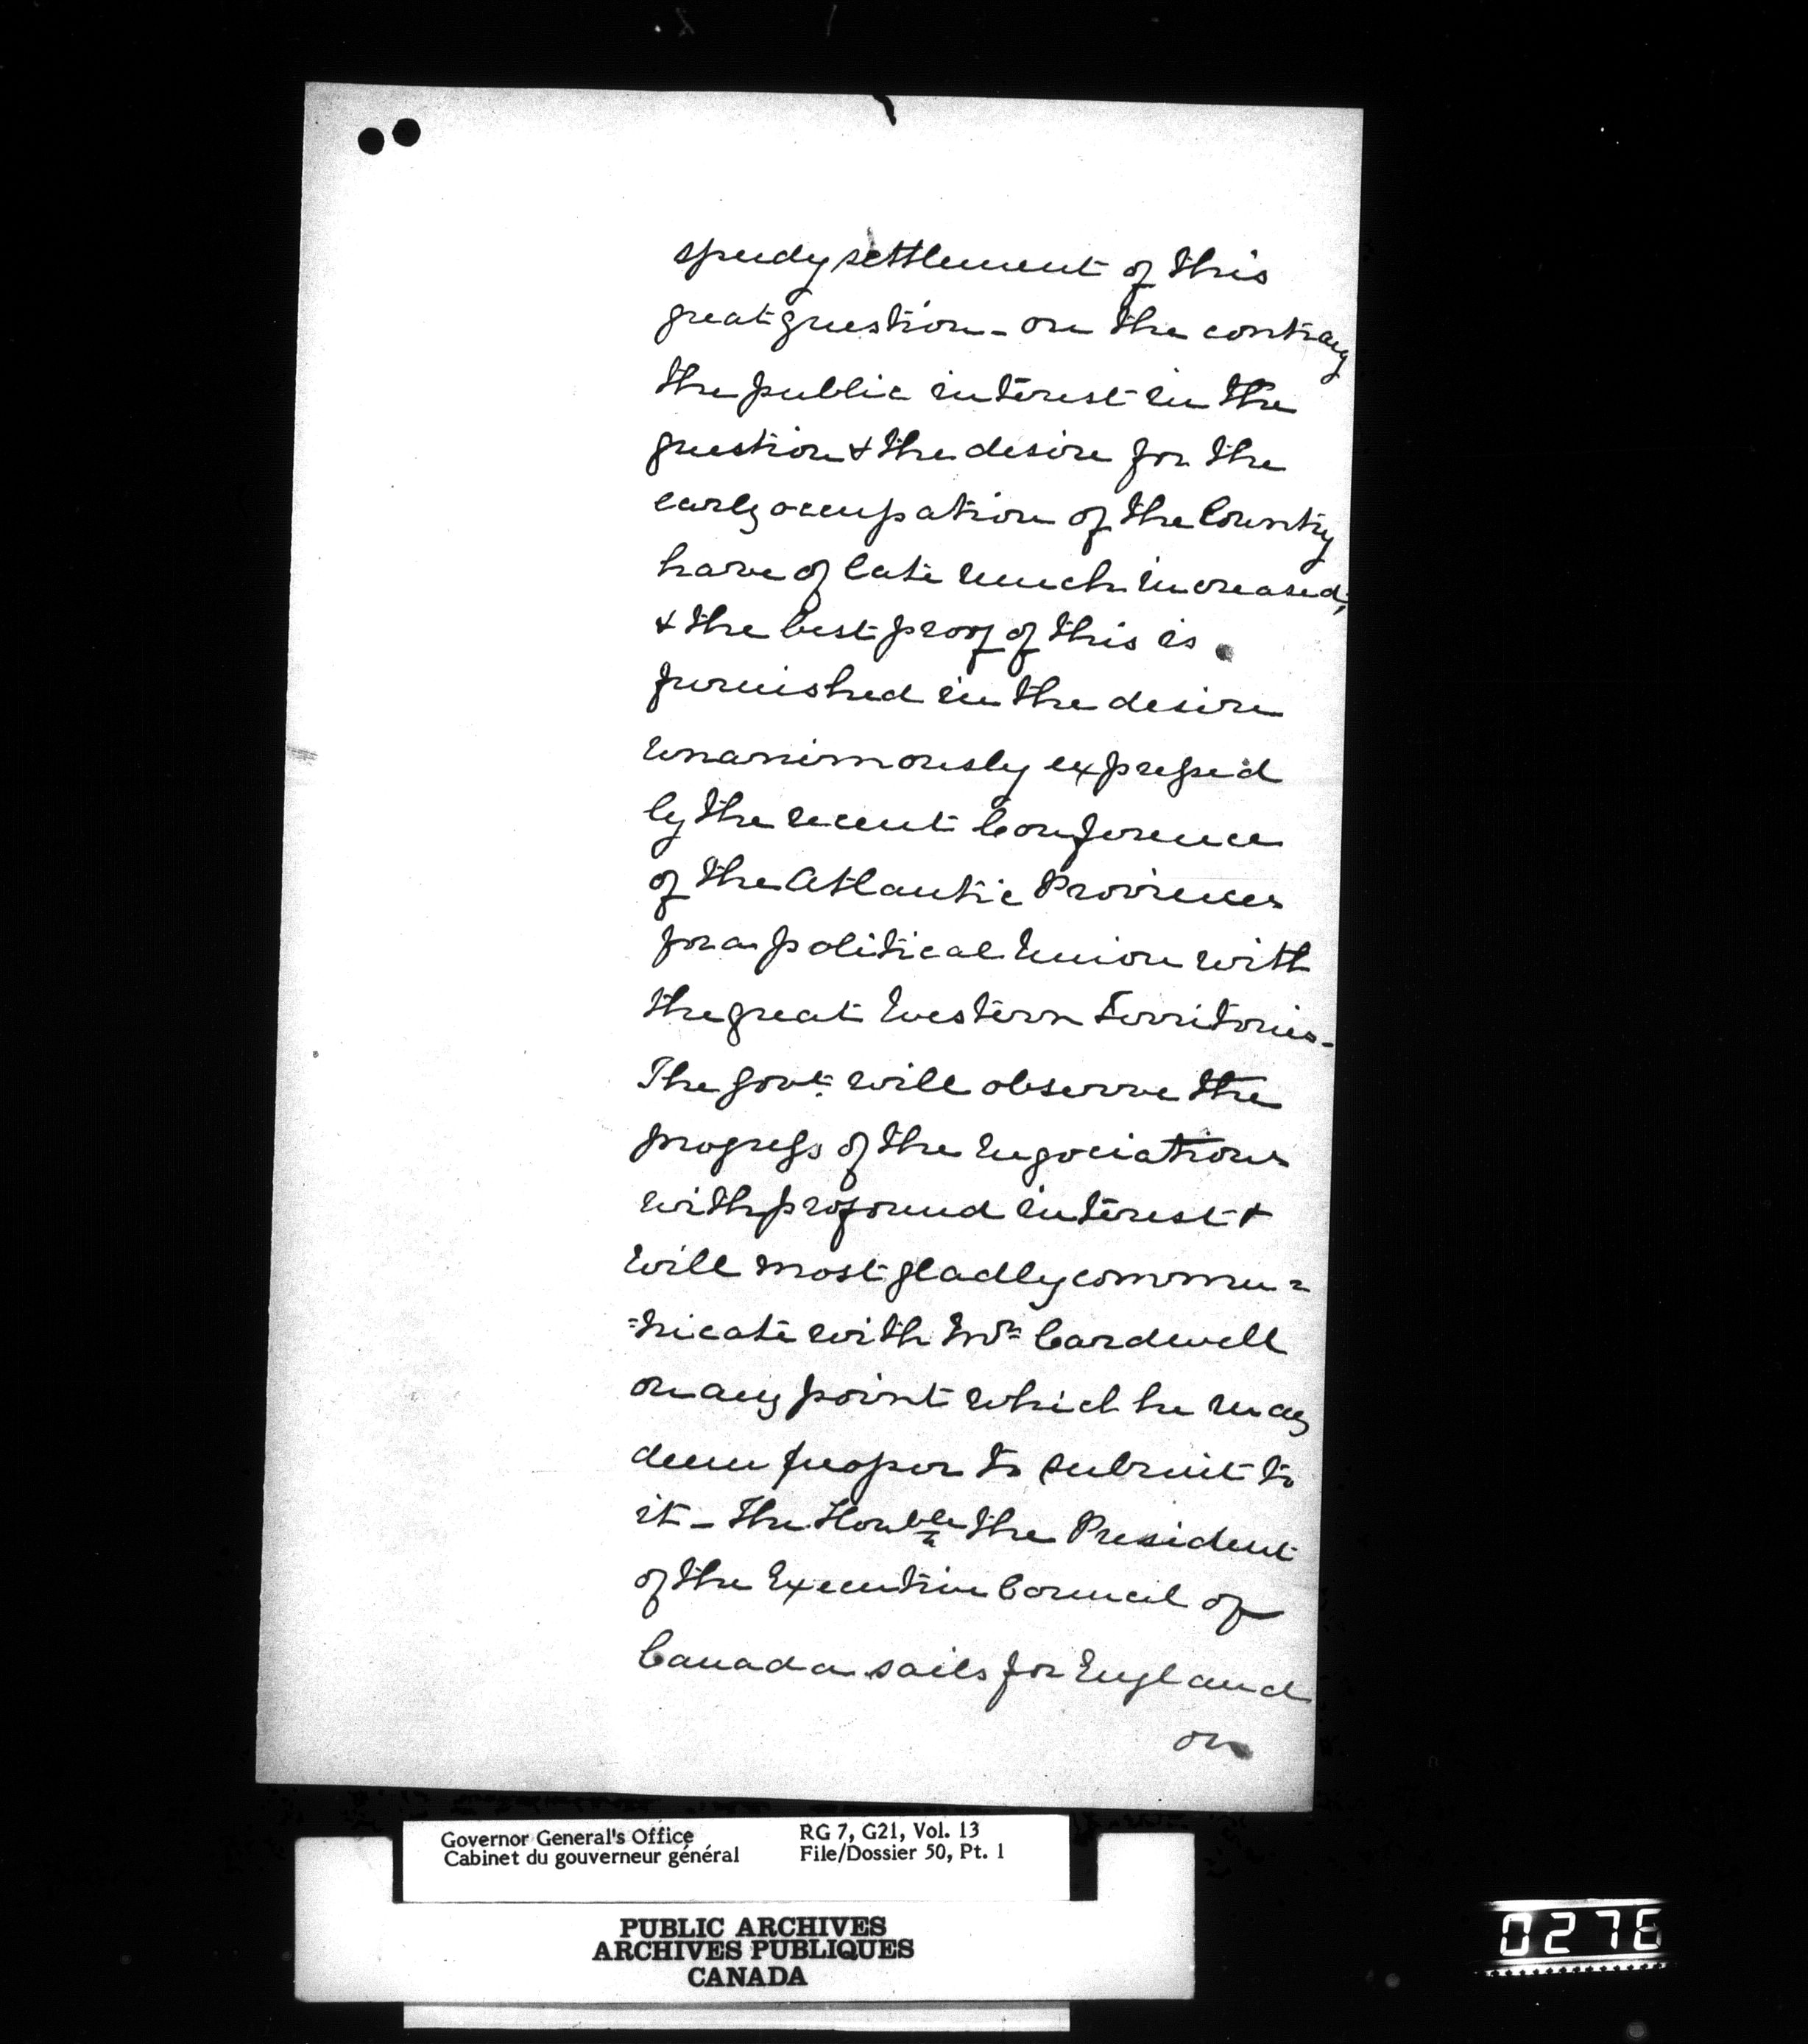 speedy settlement of this
great question - on the contrary
the public interest in the
question & the desire for the
early occupation of the Country
have of late much increased;
& the best proof of this is
furnished in the desire
unanimously expressed
by the recent Conference
of the Atlantic Provinces
for a political Union with
the great Western Territories -
The Govt. will observe the
progress of the negociations
with profound interest &
will most gladly commu=
=nicate with Mr Cardwell
on any point which he may
deem proper to submit to
it - The Honble the President
of the Executive Council of
Canada sails for England
on
Governor General's Office RG 7, G21, Vol. 13
Cabinet du gouverneur général File/Dossier 50, Pt. 1
PUBLIC ARCHIVES
ARCHIVES PUBLIQUES
CANADA
0276